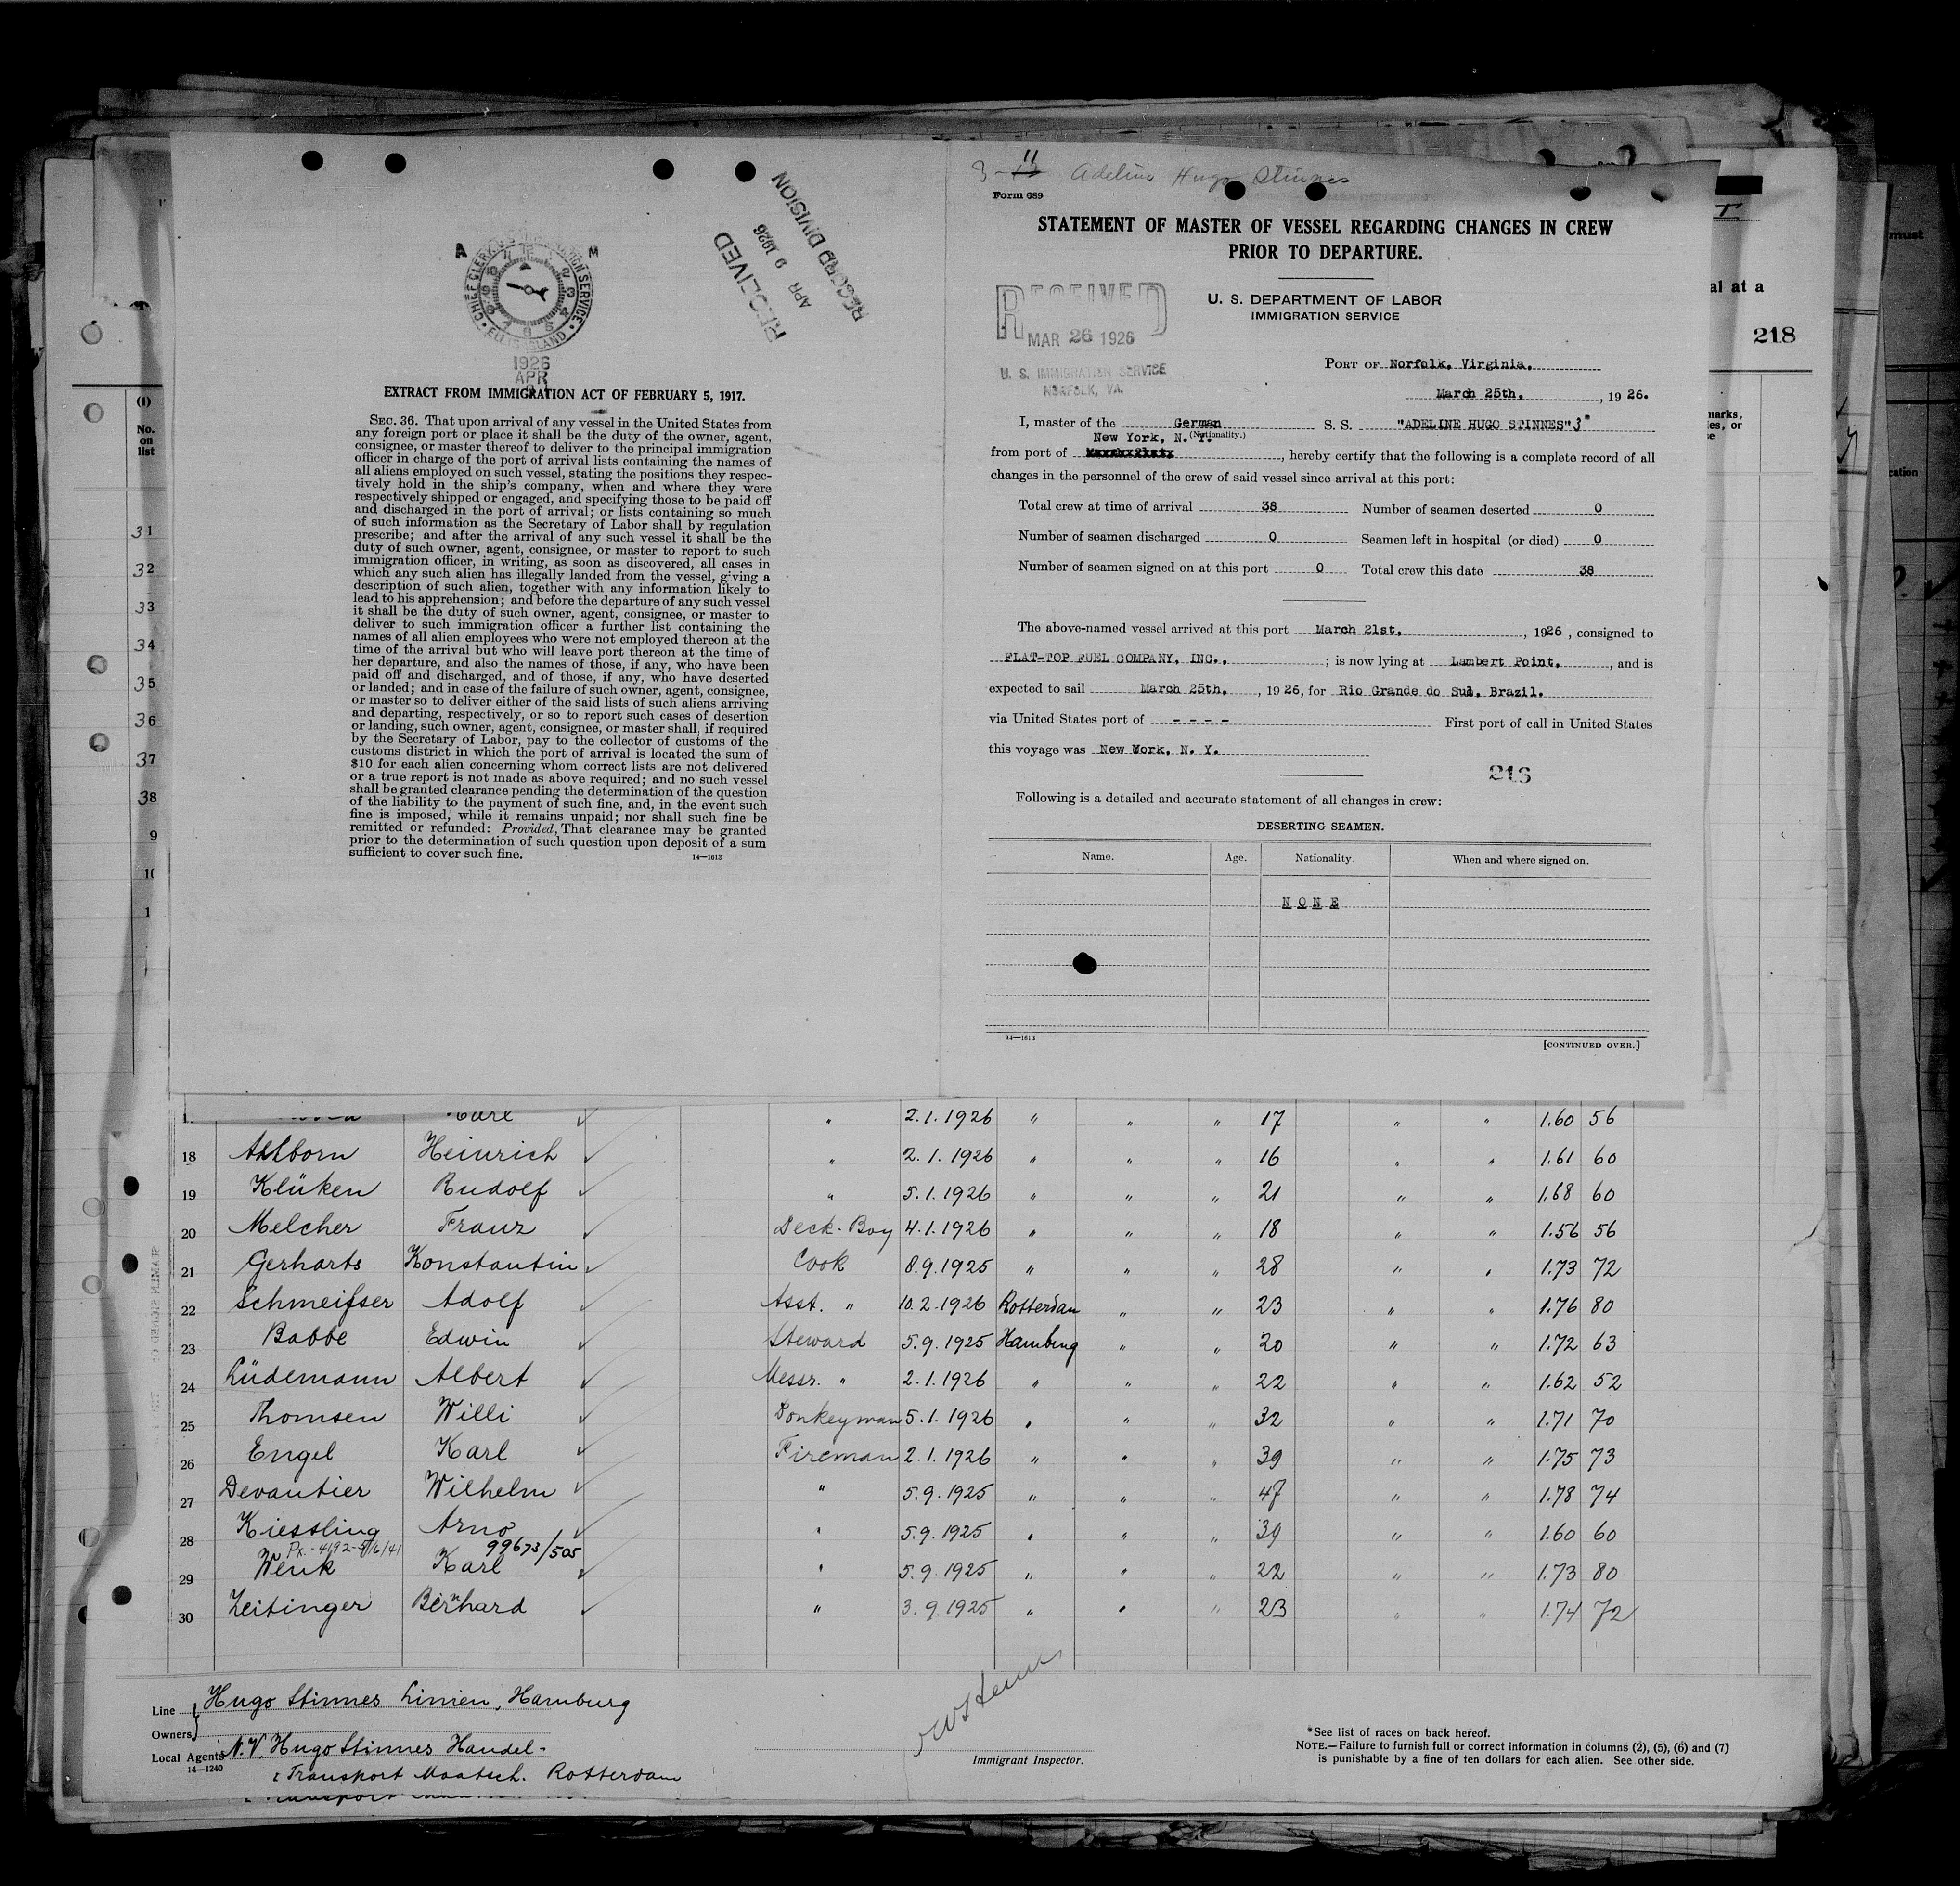 CHIEF CLERK'S
IMMIGRATION SERVICE
ELLIS ISLAND
A M
1926
APR
9
RECEIVED
APR 9 1926
RECORD DIVISION
EXTRACT FROM IMMIGRATION ACT OF FEBRUARY 5, 1917.
SEC. 36. That upon arrival of any vessel in the United States from
any foreign port or place it shall be the duty of the owner, agent,
consignee, or master thereof to deliver to the principal immigration
officer in charge of the port of arrival lists containing the names of
all aliens employed on such vessel, stating the positions they respec-
tively hold in the ship's company, when and where they were
respectively shipped or engaged, and specifying those to be paid off
and discharged in the port of arrival; or lists containing so much
of such information as the Secretary of Labor shall by regulation
prescribe; and after the arrival of any such vessel it shall be the
duty of such owner, agent, consignee, or master to report to such
immigration officer, in writing, as soon as discovered, all cases in
which any such alien has illegally landed from the vessel, giving a
description of such alien, together with any information likely to
lead to his apprehension; and before the departure of any such vessel
it shall be the duty of such owner, agent, consignee, or master to
deliver to such immigration officer a further list containing the
names of all alien employees who were not employed thereon at the
time of the arrival but who will leave port thereon at the time of
her departure, and also the names of those, if any, who have been
paid off and discharged, and of those, if any, who have deserted
or landed; and in case of the failure of such owner, agent, consignee,
or master so to deliver either of the said lists of such aliens arriving
and departing, respectively, or so to report such cases of desertion
or landing, such owner, agent, consignee, or master shall, if required
by the Secretary of Labor, pay to the collector of customs of the
customs district in which the port of arrival is located the sum of
$10 for each alien concerning whom correct lists are not delivered
or a true report is not made as above required; and no such vessel
shall be granted clearance pending the determination of the question
of the liability to the payment of such fine, and, in the event such
fine is imposed, while it remains unpaid; nor shall such fine be
remitted or refunded: Provided, That clearance may be granted
prior to the determination of such question upon deposit of a sum
sufficient to cover such fine.
14—1613
3-11 Adeline Hugo Stinnes
Form 689
STATEMENT OF MASTER OF VESSEL REGARDING CHANGES IN CREW
PRIOR TO DEPARTURE.
U. S. DEPARTMENT OF LABOR
IMMIGRATION SERVICE
RECEIVED
MAR 26 1926
U. S. IMMIGRATION SERVICE
NORFOLK, VA.
PORT OF Norfolk, Virginia.
March 25th. , 1926.
I, master of the German S. S. "ADELINE HUGO STINNES" 3"
New York, N. Y. (Nationality.)
from port of , hereby certify that the following is a complete record of all
changes in the personnel of the crew of said vessel since arrival at this port:
Total crew at time of arrival 38 Number of seamen deserted 0
Number of seamen discharged 0 Seamen left in hospital (or died) 0
Number of seamen signed on at this port 0 Total crew this date 38
The above-named vessel arrived at this port March 21st. , 1926, consigned to
FLAT-TOP FUEL COMPANY, INC., ; is now lying at Lambert Point. , and is
expected to sail March 25th. , 1926, for Rio Grande do Sul. Brazil.
via United States port of - - - - First port of call in United States
this voyage was New York, N. Y.
218
Following is a detailed and accurate statement of all changes in crew:
DESERTING SEAMEN.
Name. Age. Nationality. When and where signed on.
NONE
14—1613
[CONTINUED OVER.]
al at a
218
must
marks,
es, or
cation
(1)
No.
on
list
31
32
33
34
35
36
37
38
9
10
1
Karl " 2.1.1926 " " " 17 " " 1.60 56
18 Ahlborn Heinrich " 2.1.1926 " " " 16 " " 1.61 60
19 Klüken Rudolf " 5.1.1926 " " " 21 " " 1.68 60
20 Melcher Franz Deck-Boy 4.1.1926 " " " 18 " " 1.56 56
21 Gerharts Konstantin Cook 8.9.1925 " " " 28 " " 1.73 72
22 Schmeifser Adolf Asst. " 10.2.1926 Rotterdam " " 23 " " 1.76 80
23 Babbe Edwin Steward 5.9.1925 Hamburg " " 20 " " 1.72 63
24 Lüdemann Albert Messr. " 2.1.1926 " " " 22 " " 1.62 52
25 Thomsen Willi Donkeyman 5.1.1926 " " " 32 " " 1.71 70
26 Engel Karl Fireman 2.1.1926 " " " 39 " " 1.75 73
27 Devantier Wilhelm " 5.9.1925 " " " 47 " " 1.78 74
28 Kiessling Arno " 5.9.1925 " " " 39 " " 1.60 60
Pk.-4192-5/6/41 99673/505
29 Wenk Karl " 5.9.1925 " " " 22 " " 1.73 80
30 Zeitinger Bernhard " 3.9.1925 " " " 23 " " 1.74 72
Line Hugo Stinnes Linien, Hamburg
Owners
Local Agents N.V. Hugo Stinnes Handel-
14—1240
& Transport Maatsch. Rotterdam
Immigrant Inspector.
*See list of races on back hereof.
NOTE.—Failure to furnish full or correct information in columns (2), (5), (6) and (7)
is punishable by a fine of ten dollars for each alien. See other side.